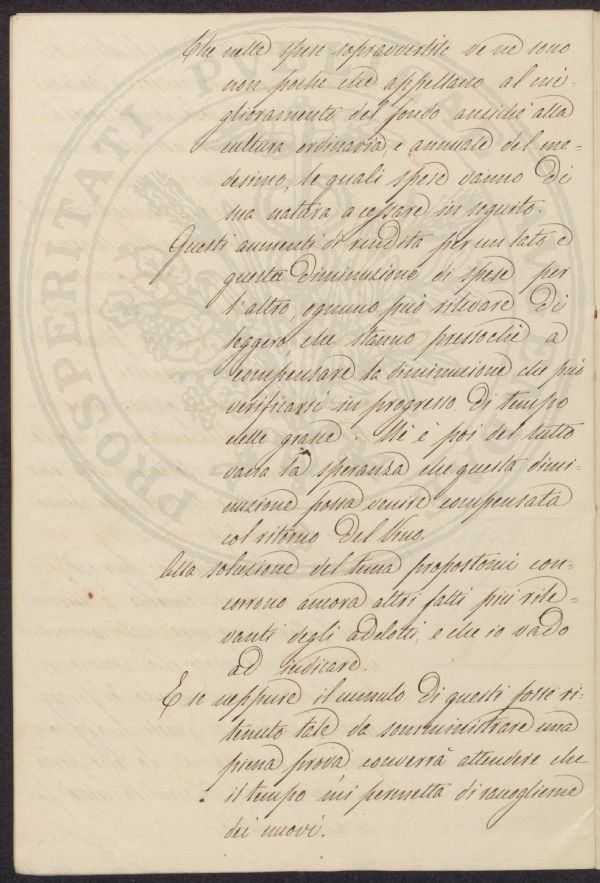 Che nelle spese sopravvertite ve ne sono
non poche che appellano al mi-
glioramento del fondo anziché alla
cultura ordinaria, e annuale del me-
desimo, le quali spese vanno di
sua natura a cessare in seguito.
Questi aumenti di rendita per un lato e
questa diminuzione di spese per
l'altro, ognuno può rilevare di
leggero, che stanno pressoché a
compensare la diminuzione che può
verificarsi in progresso di tempo
delle grasce. Né è poi del tutto
vana la speranza che questa dimi-
nuzione possa venire compensata
col ritorno del Vino.
Alla soluzione del tema propostomi con-
corrono ancora altri fatti più rile-
vanti degli adotti, e che io vado
ad indicare.
E se neppure il cumulo di questi fosse ri-
tenuto tale da somministrare una
piena prova converrà attendere che
il tempo mi permetta di raccoglierne
dei nuovi.
PROSPERITATI PUBLICAE